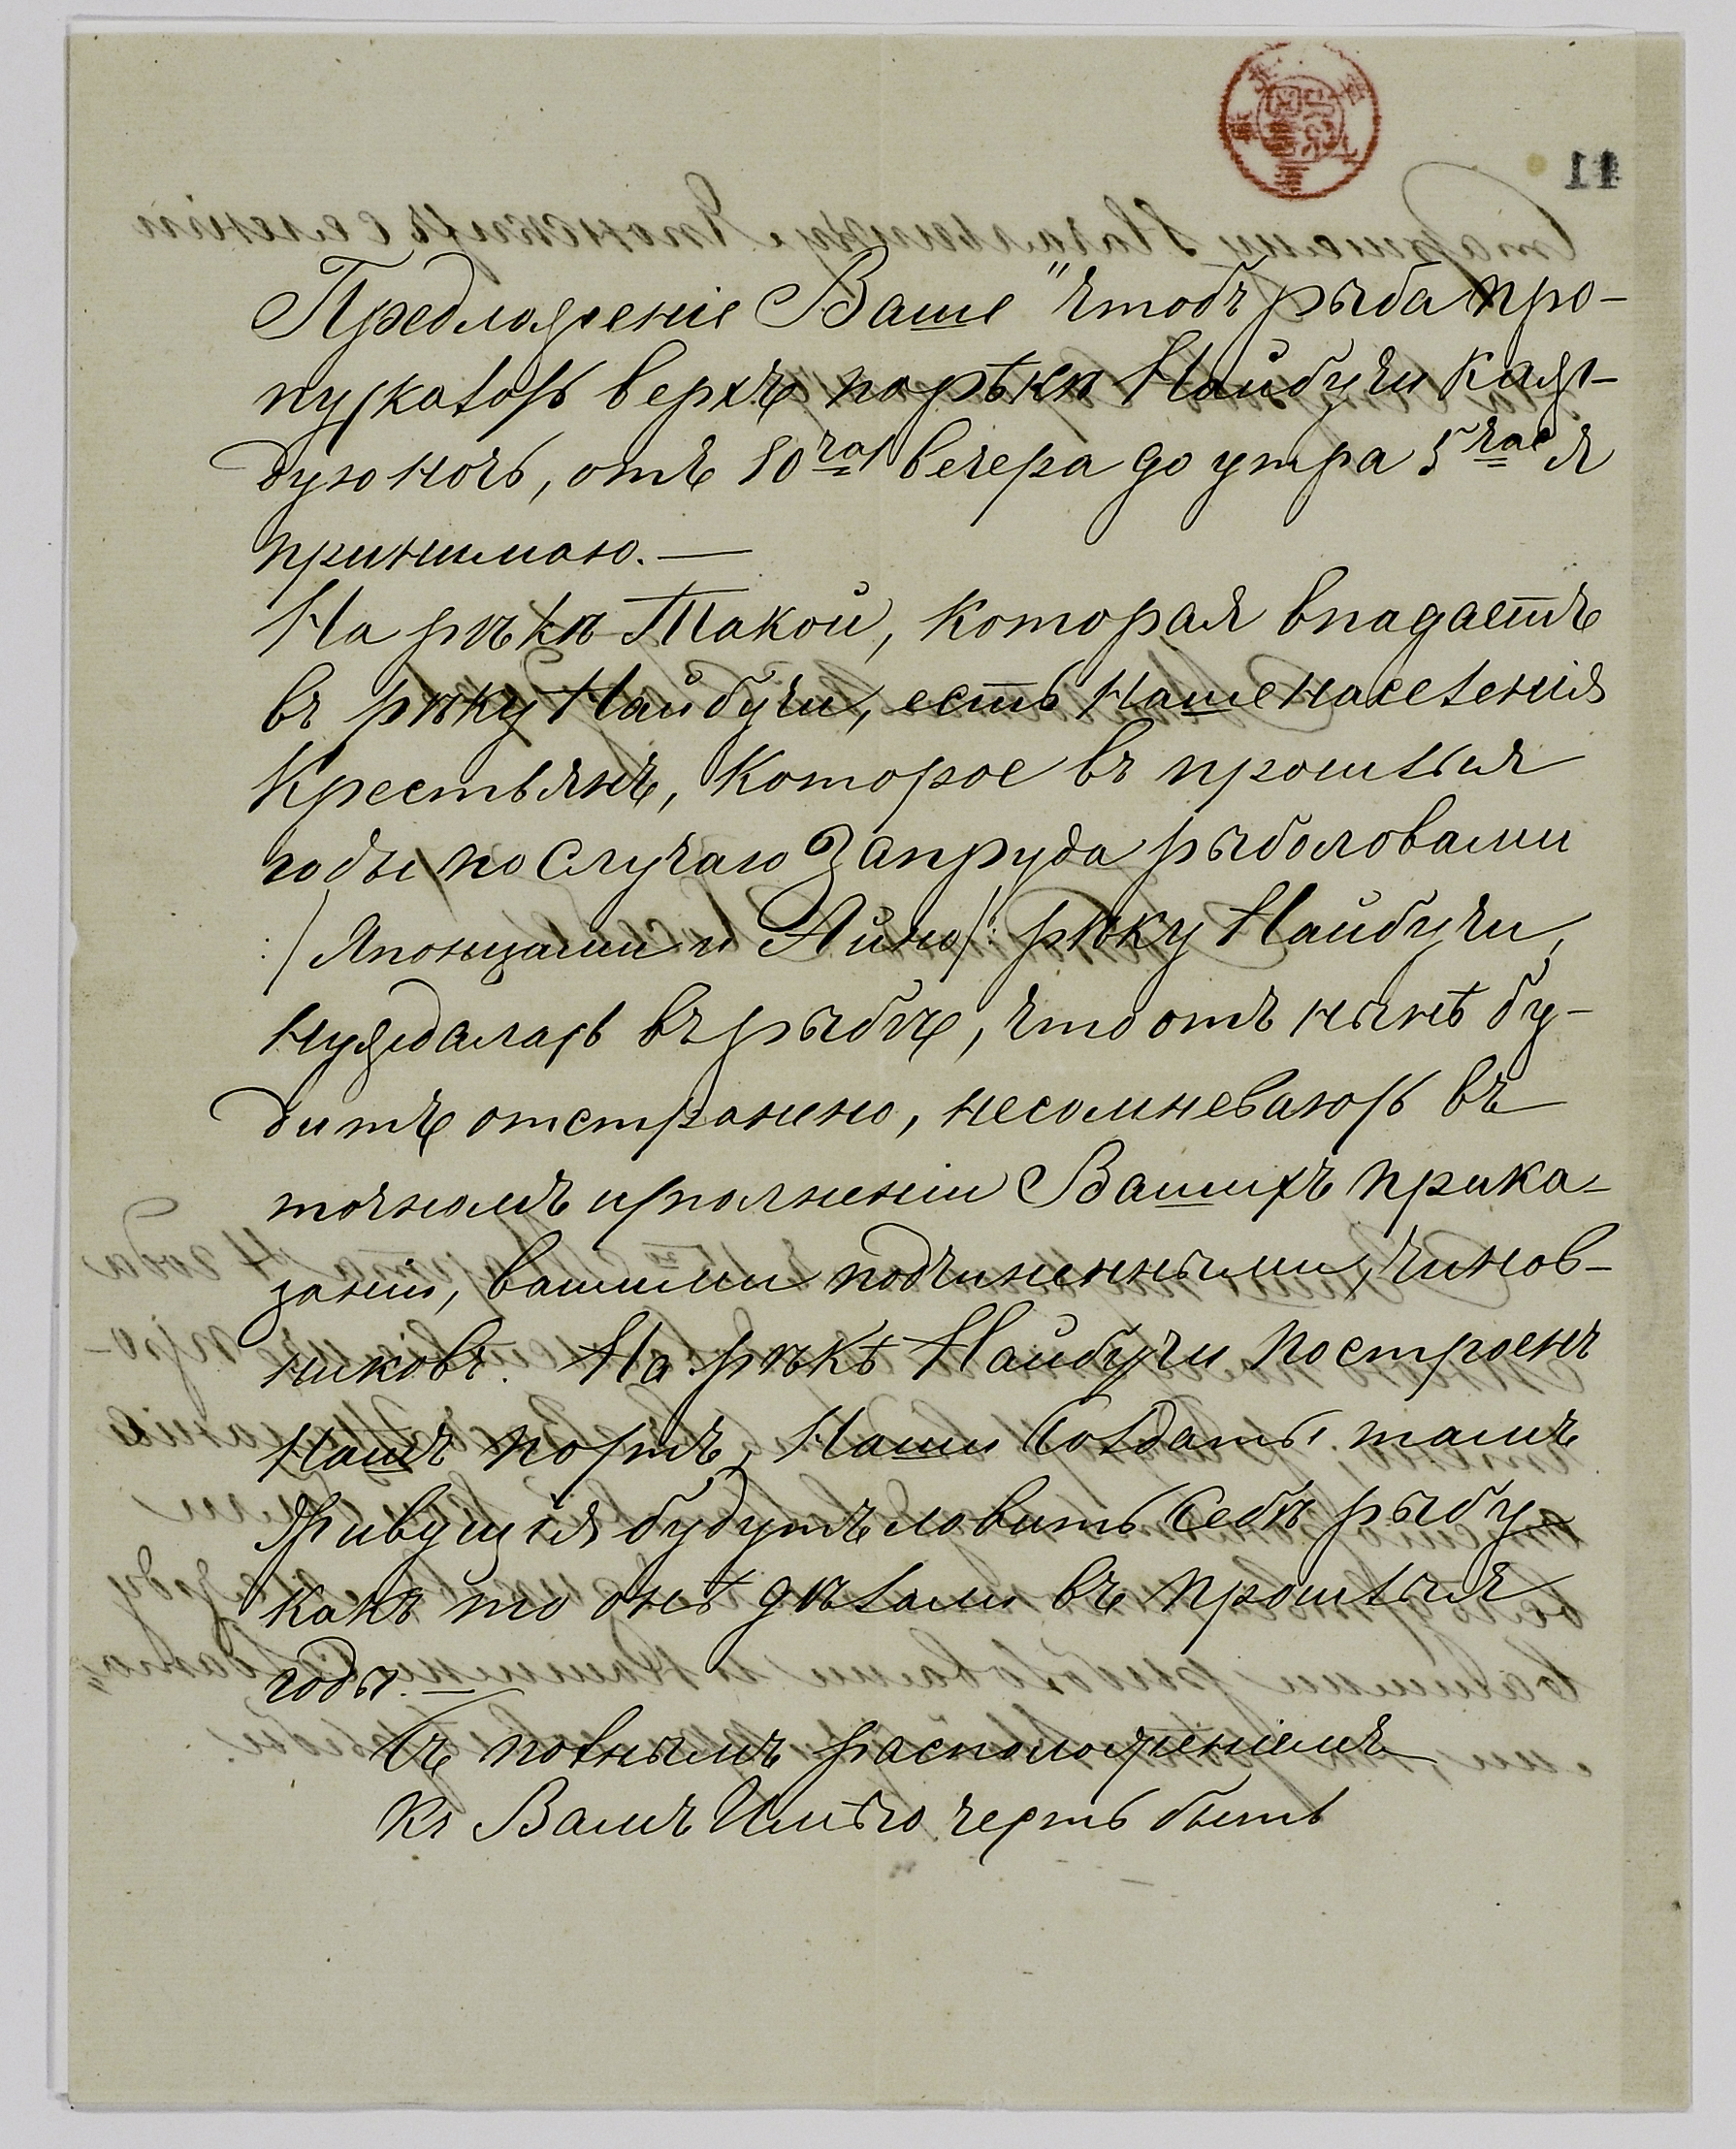 Предложеніе Ваше "чтобъ рыба про-
пускалось верхъ по рѣкѣ Найбучи каж-
дую ночь, отъ 10 час вечера до утра 5 час я
принимаю. —
На рѣкѣ Такой, которая впадаетъ
въ рѣку Найбучи, есть Наше населенія
Крестьянъ, Которое въ прошлыя
годы по Случаю Запруда рыболовами
:/ Японцами и Айно /: рѣку Найбучи,
нуждалась въ рыбѣ, что отъ нынѣ бу-
дитъ отстранено, несомневаюсь въ
точномъ исполненіи Вашихъ прика-
заній, вашими подчиненными, чинов-
никовъ. На рѣкѣ Найбучи построенъ
Нашъ постъ, Наши Солдаты тамъ
живущія будутъ ловить Себѣ рыбу
какъ то онѣ дѣлали въ прошлыя
годы. —
Съ полнымъ расположеніемъ
къ Вамъ Имѣю честь быть